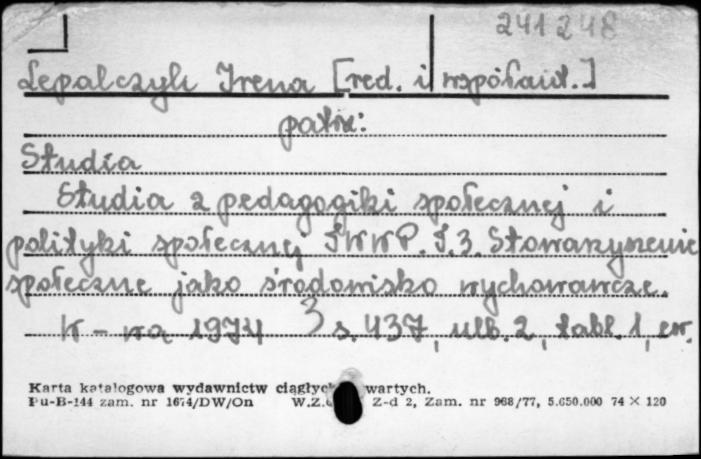 241248
Lepalczyk Irena [red. i współaut.]
patrz:
Studia
Studia z pedagogiki społecznej i
polityki społecznej TWWP. T.3. Stowarzyszenie
społeczne jako środowisko wychowawcze.
W-wa 1974 s. 437, ulb. 2, tabl. 1, err.
Karta katalogowa wydawnictw ciągłych wartych.
Pu-B-144 zam. nr 1674/DW/On W.Z. Z-d 2, Zam. nr 968/77, 5.650.000 74 × 120